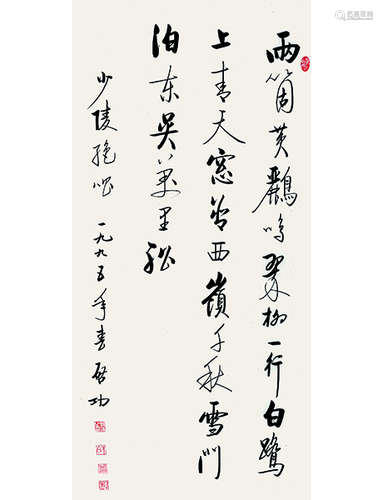 两箇黄鸝鸣翠柳一行白鹭
上青天窓含西嶺千秋雪门
泊东吴万里船
少陵绝唱 一九九五年春 启功